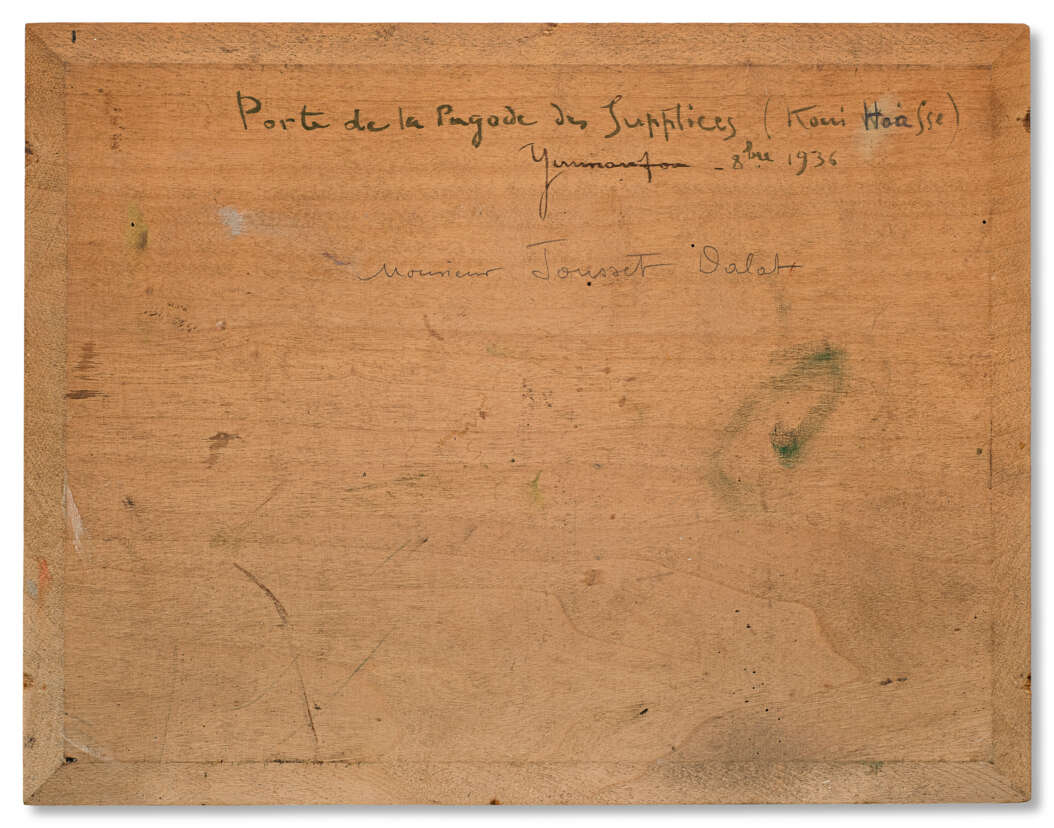 Porte de la Pagode des Supplices (Koui Hoa Sse)
Yunnanfou - 8bre 1936
Monsieur Jousset Dalat